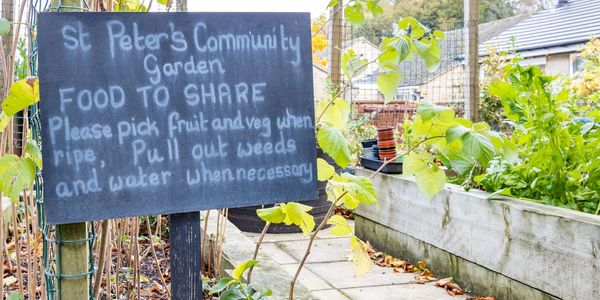 St Peter's Community
Garden
FOOD TO SHARE
Please pick fruit and veg when
ripe. Pull out weeds
and water when necessary